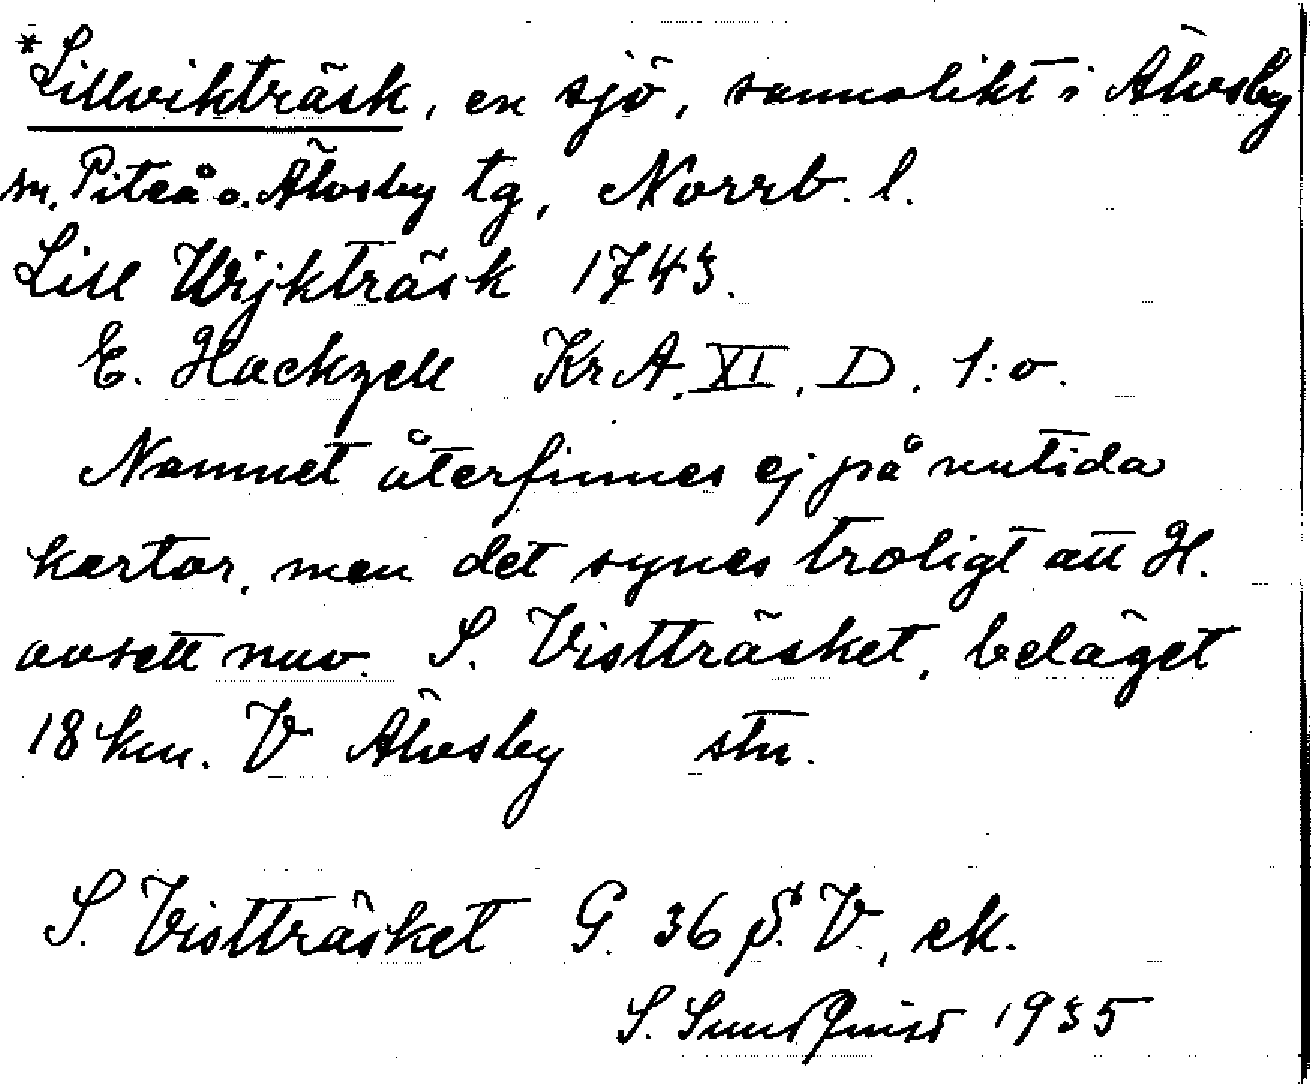 *Lillvikträsk, en sjö, sannolikt i Älvsby
sn. Piteå o. Älvsby tg, Norrb. l.
Lill Wijkträsk 1743.
E. Hackzell KrA. XI. D. 1:o.
Namnet återfinnes ej på nutida
kartor, men det synes troligt att H.
avsett nuv. S. Vistträsket, beläget
18 km. V Älvsby stn.
S. Vistträsket G. 36 S. V., ek.
S. Sundquist 1935